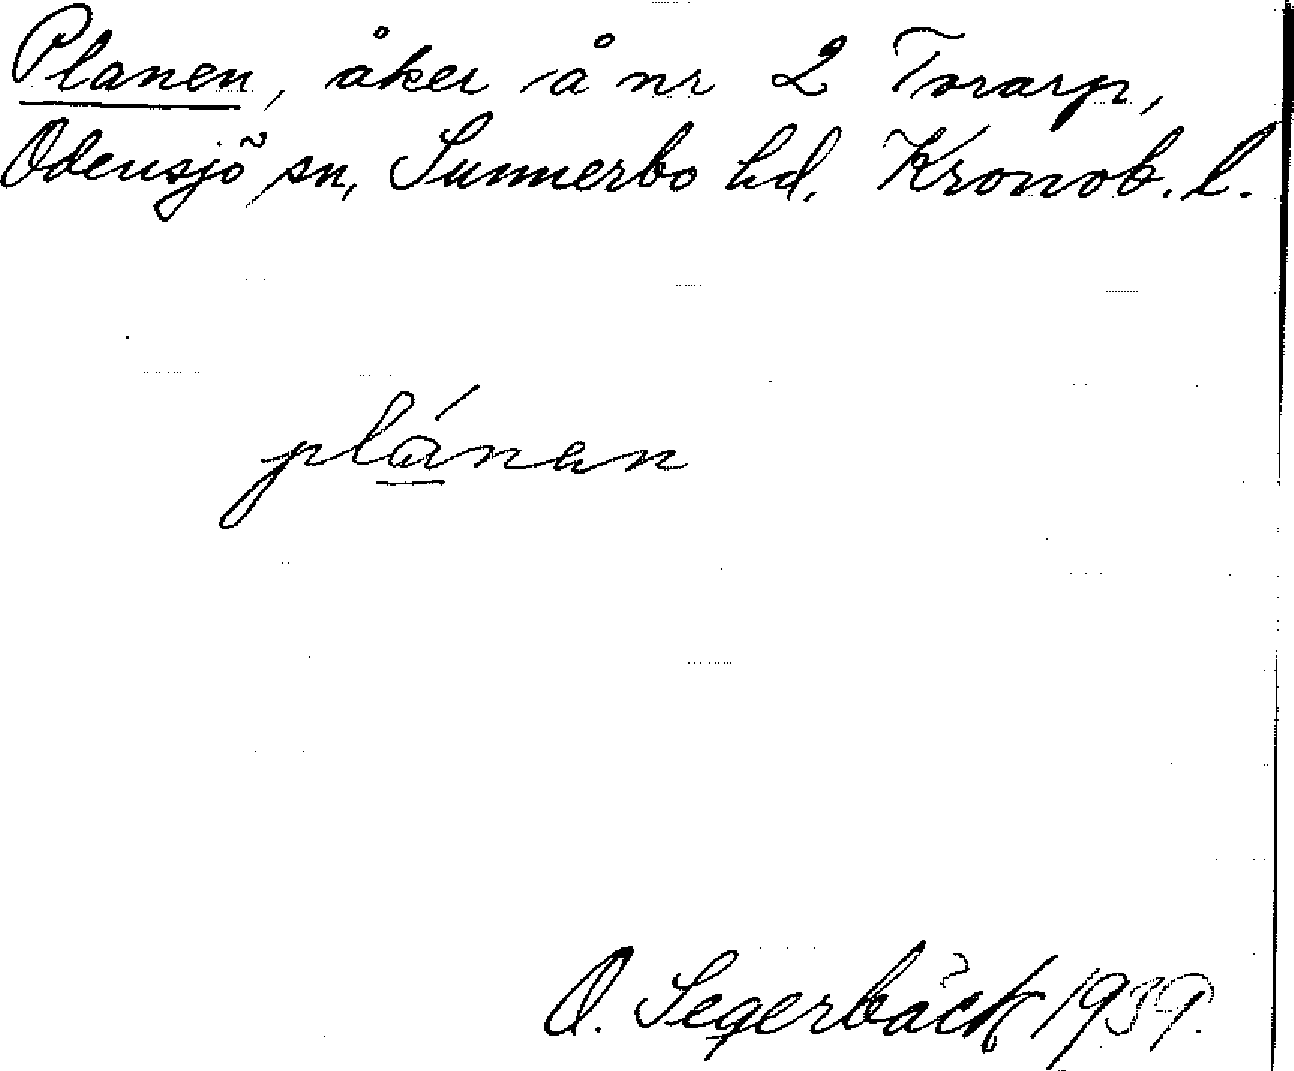 Planen, åker å nr 2 Torarp,
Odensjö sn, Sunnerbo hd. Kronob. l.
plánan
O. Segerbäck 1939.